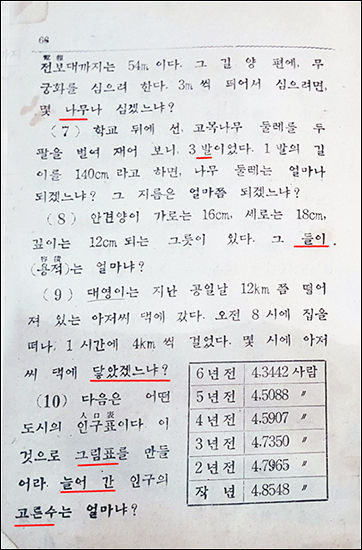 68
電報
전보대까지는 54m 이다. 그 길 양 편에, 무
궁화를 심으려 한다. 3m 씩 띄어서 심으려면,
몇 나무나 심겠느냐?
(7) 학교 뒤에 선, 고목나무 둘레를 두
팔을 벌여 재어 보니, 3 발이었다. 1 발의 길
이를 140cm 라고 하면, 나무 둘레는 얼마나
되겠느냐? 그 지름은 얼마쯤 되겠느냐?
(8) 안겉양이 가로는 16cm, 세로는 18cm,
깊이는 12cm 되는 그릇이 있다. 그 들이
容積
(용적)는 얼마냐?
(9) 대영이는 지난 공일날 12km 쯤 떨어
져 있는 아저씨 댁에 갔다. 오전 8 시에 집을
떠나, 1 시간에 4km 씩 걸었다. 몇 시에 아저
씨 댁에 닿았겠느냐?
(10) 다음은 어떤
人口表
도시의 인구표이다 이
것으로 그림표를 만들
어라. 늘어 간 인구의
고른수는 얼마냐?
6년전 4.3442 사람
5년전 4.5088 〃
4년전 4.5907 〃
3년전 4.7350 〃
2년전 4.7965 〃
작 년 4.8548 〃